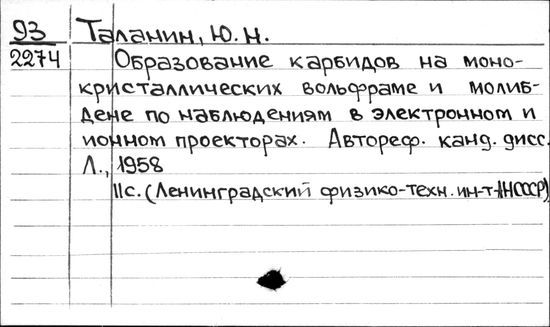 93 Таланин, Ю.Н.
2274 Образование карбидов на моно-
кристаллических вольфраме и молиб-
дене по наблюдениям в электронном и
ионном проекторах. Автореф. канд. дисс.
Л., 1958
11с. (Ленинградский физико-техн. ин-т АН СССР)